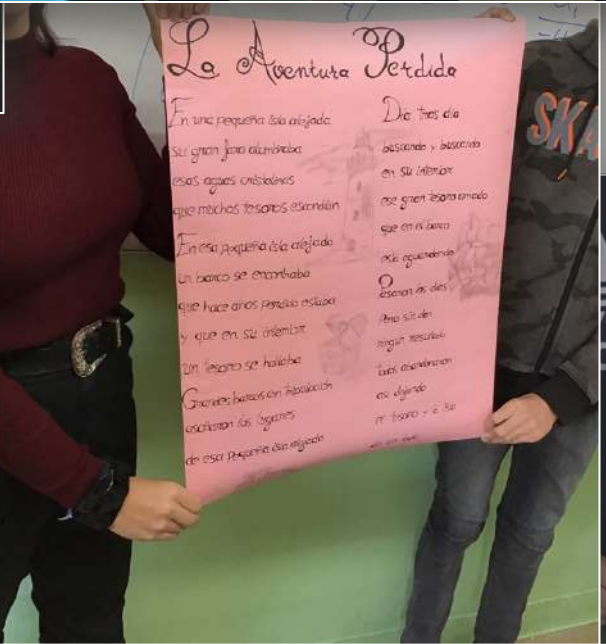 La Aventura Perdida
En una pequeña isla alejada
su gran faro alumbraba
esas aguas cristalinas
que muchos tesoros escondían
En esa pequeña isla alejada
un barco se encontraba
que hace años perdido estaba
y que en su interior
un tesoro se hallaba
Grandes barcos con tripulación
los lugares
de esa pequeña isla alejada
Día tras día
buscando y buscando
en su interior
ese gran tesoro amado
que en el barco
está aguardando
Pasaron los días
Pero sin dar
ningún resultado
todos abandonaron
dejando
el tesoro y a su
SKA